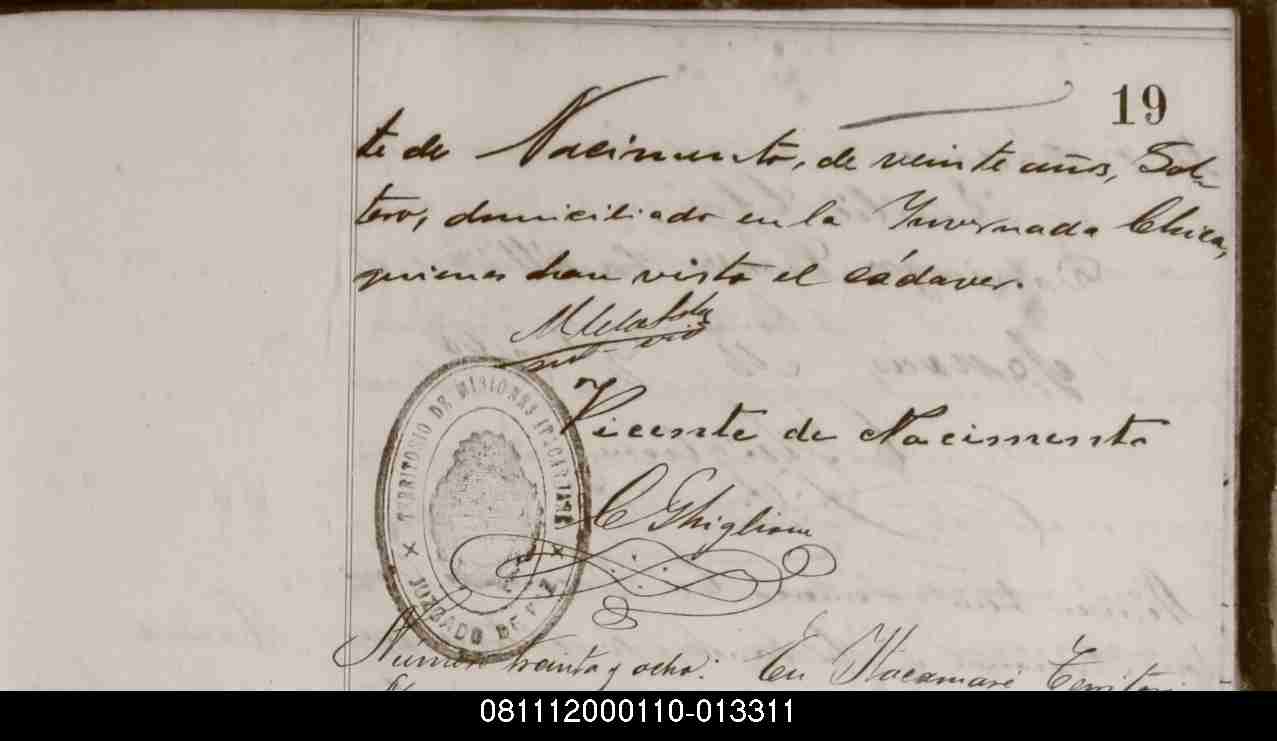 19
te de Nacimento, de veinte años, Sol-
tero, domiciliado en la Invernada Chica,
quienes han visto el cádaver.
Vicente de Nacimento
C Ghiglione
TERRITORIO DE MISIONES ITACARUARE
JUZGADO DE PAZ
Número treinta y ocho: En Itacaruaré Territori
081112000110-013311